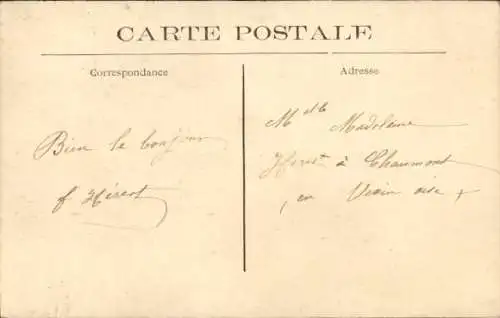 CARTE POSTALE
Correspondance
Adresse
Bien le bonjour
f Hérest
Mlle Madeleine
à Chaumont
en Vexin oise